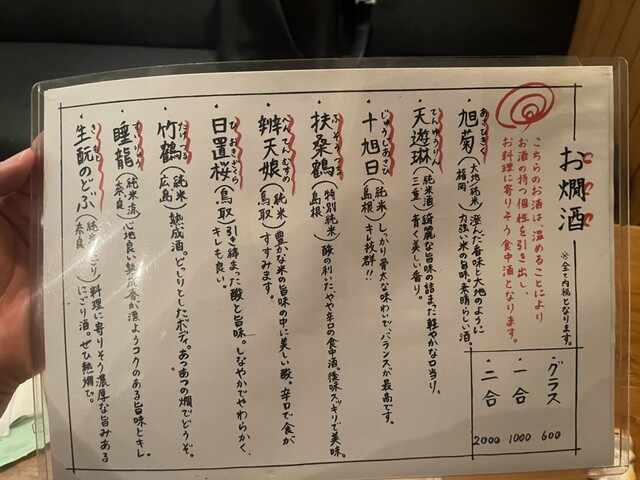 お燗酒
※全て内税となります。
こちらのお酒は、温めることにより
お酒の持つ個性を引き出し、
お料理に寄りそう食中酒となります。
・グラス 600
・一合 1000
・二合 2000
あさひきく
・旭菊(大地 純米)(福岡)
澄んだ香味と大地のように
力強い米の旨味。素晴らしい酒。
てんゆうりん
・天遊琳(純米酒)(三重)
綺麗な旨味の詰まった軽やかな口当り。
青く美しい香り。
じゅうじあさひ
・十旭日(純米)(島根)
しっかり骨太な味わいで、バランスが最高です。
キレ抜群!!
ふそうつる
・扶桑鶴(特別純米)(島根)
酸の利いた、やや辛口の食中酒。後味スッキリで美味。
べんてんむすめ
・辨天娘(純米)(鳥取)
豊かな米の旨味の中に美しい酸。辛口で食が
すすみます。
ひおきざくら
・日置桜(鳥取)
引き締まった酸と旨味。しなやかでやわらかく、
キレも良い。
たけつる
・竹鶴(純米)(広島)
熟成酒。どっしりとしたボディ。あつあつの燗でどうぞ。
・睡龍(純米 流)(奈良)
心地良い熟成香が漂ようコクのある旨味とキレ。
きもと
・生酛のどぶ(純米 にごり)(奈良)
料理に寄りそう濃厚な旨みある
にごり酒。ぜひ熱燗で。